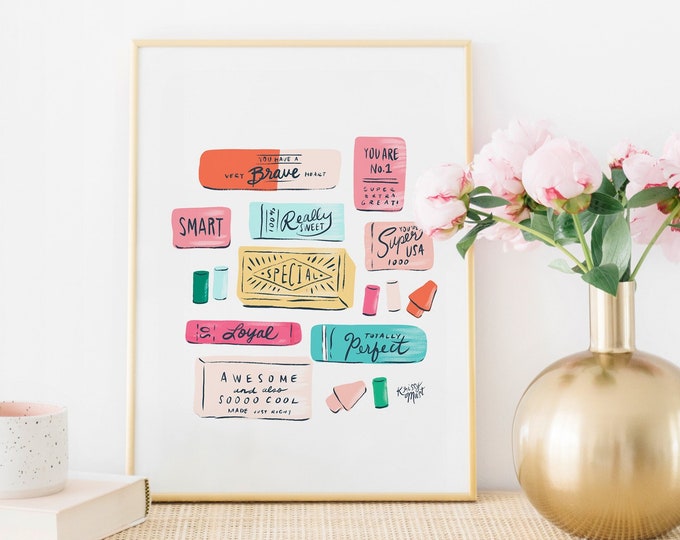 YOU HAVE A
VERY Brave HEART
YOU ARE
No.1
SUPER
EXTRA
GREAT!
SMART
100%
Really
SWEET
YOU'RE
Super
USA
1000
SPECIAL
Loyal
TOTALLY
Perfect
AWESOME
and also
SOOOO COOL
MADE JUST RIGHT
Krissy
Mast